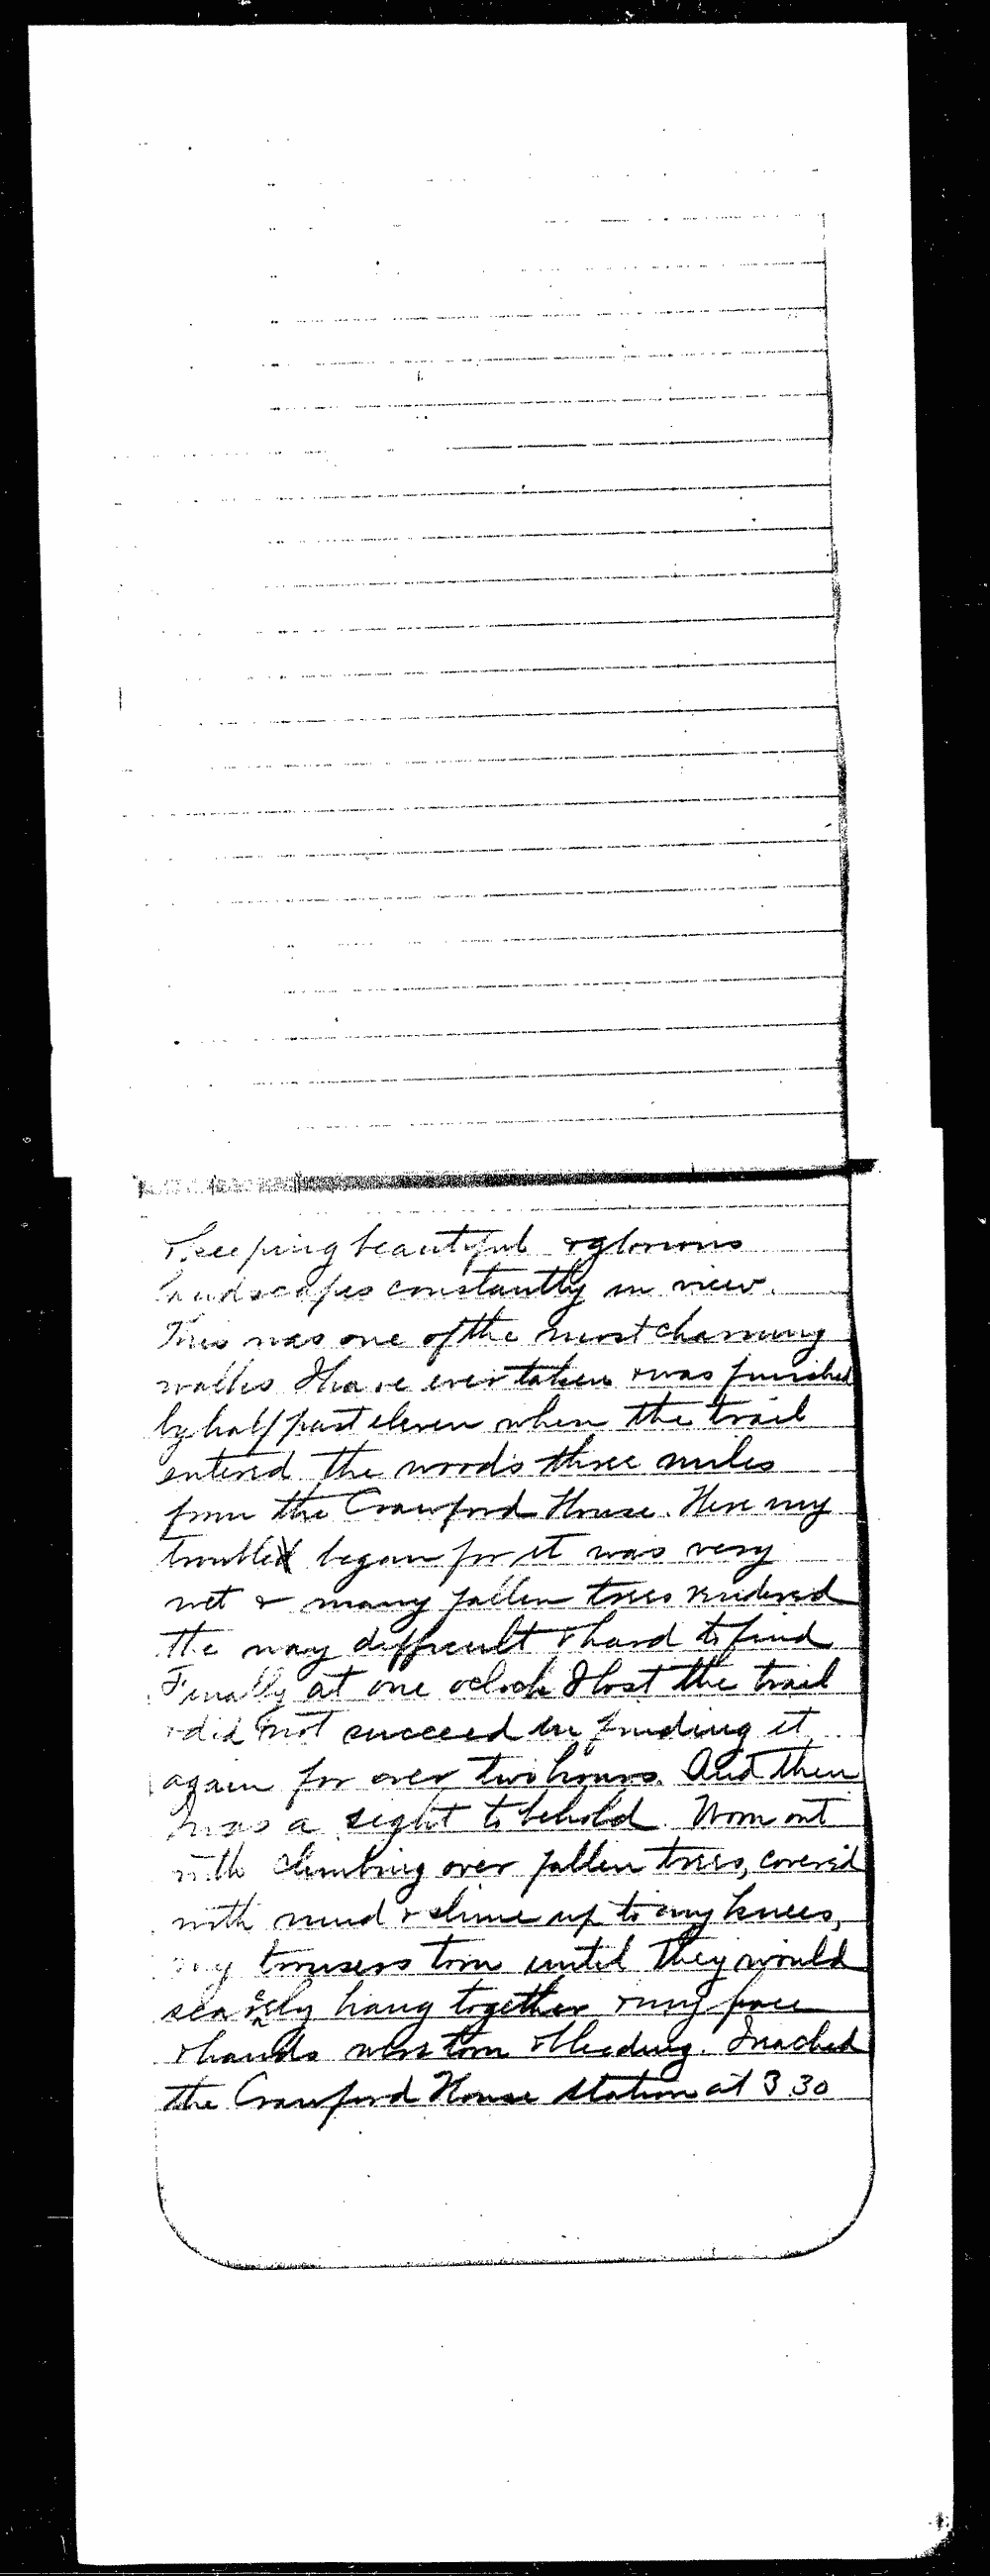 & keeping beautiful & glorious
landscapes constantly in view.
This was one of the most charming
walks I have ever taken & was finished
by half past eleven when the trail
entered the woods three miles
from the Crawford House. Here my
trouble began for it was very
wet & many fallen trees rendered
the way difficult & hard to find
Finally at one oclock I lost the trail
& did not succeed in finding it
again for over two hours. And then
I was a sight to behold. Worn out
with climbing over fallen trees, covered
with mud & slime up to my knees,
my trousers torn until they would
scarcely hang together & my face
& hands were torn & bleeding. I reached
the Crawford House station at 3.30